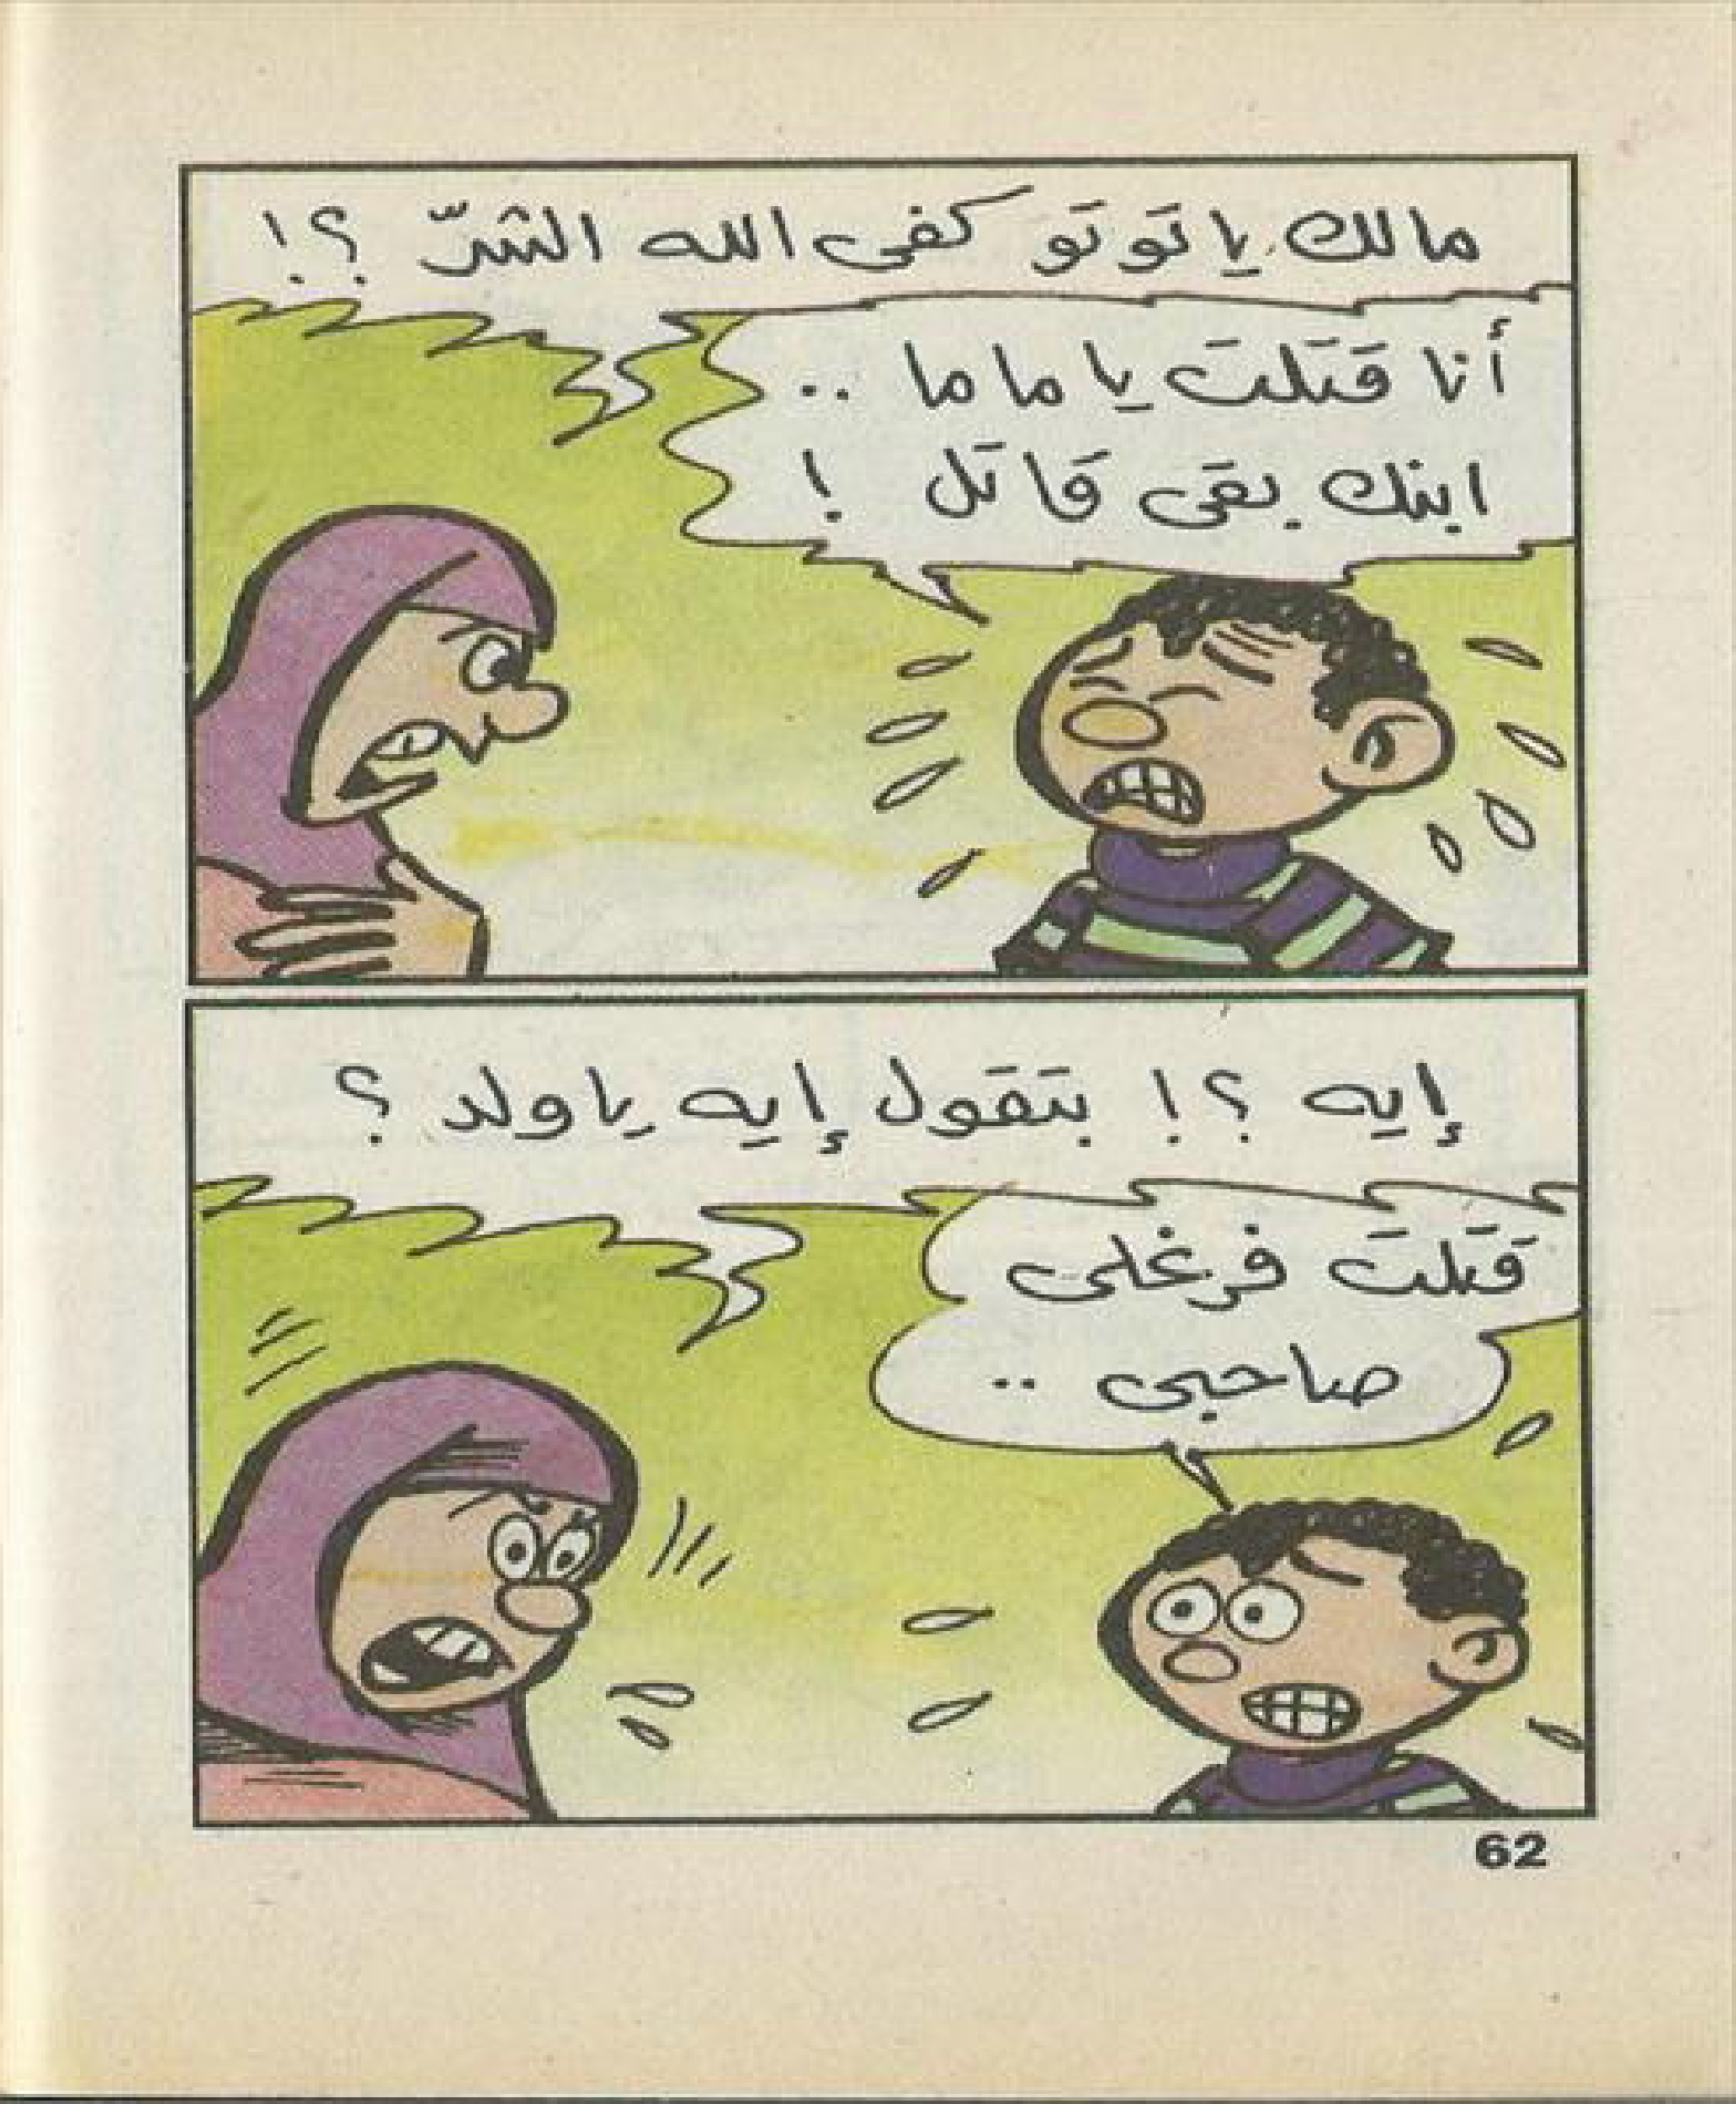 مالك يا توتو كفى الله الشرّ ؟!
أنا قتلت يا ماما ..
ابنك بقى قاتل !
إيه ؟! بتقول إيه يا ولد ؟
قتلت فرغلى
صاحبى ..
62